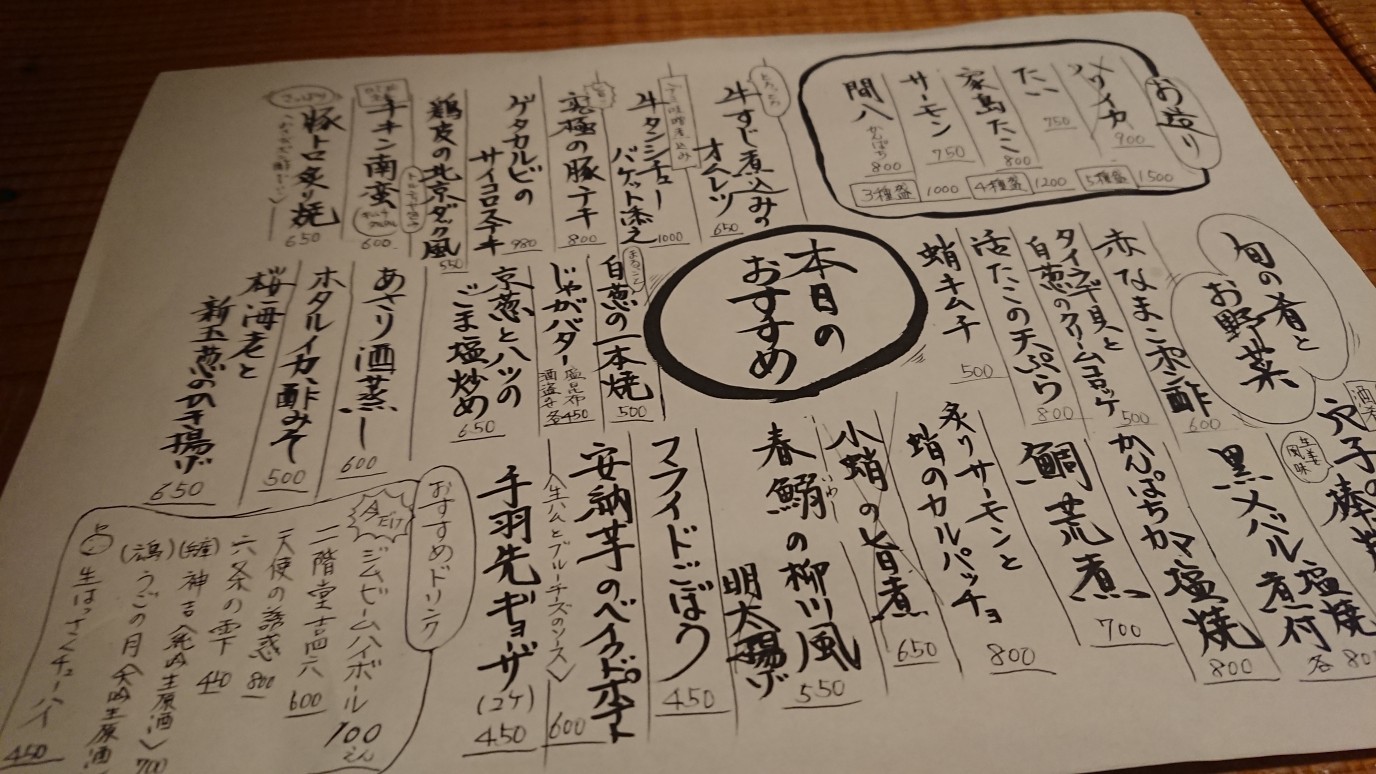 お造り
ソメイカ 900
たい 750
家島たこ 800
サーモン 750
間八 かんぱち 800
3種盛 1000
4種盛 1200
5種盛 1500
本日の
おすすめ
旬の肴と
お野菜
赤なまこポン酢 600
タイラギ貝と
白葱のクリームコロッケ 500
活たこの天ぷら 800
蛸キムチ 500
穴子の棒
塩焼
生姜風味
黒メバル 煮付
各 80
かんぱちカマ塩焼 800
鯛荒煮 700
炙りサーモンと
蛸のカルパッチョ 800
小蛸の旨煮 650
春鰯の柳川風 550
いわし
明太揚げ
フライドごぼう 450
安納芋のベイクドポテト
〈生ハムとブルーチーズのソース〉 600
手羽先ギョーザ
(2ケ) 450
とろとろ
牛すじ煮込みの
オムレツ 650
牛タンシチュー
バゲット添え 1000
究極の豚テキ 800
ゲタカルビの
サイコロステーキ 980
鶏皮の北京ダック風 550
チキン南蛮 600
さっぱり
豚トロ炙り焼 650
まるごと
白葱の一本焼 500
じゃがバター 塩昆布
酒盗 各450
京葱とハツの
ごま塩炒め 650
あさり酒蒸し 600
ホタルイカ、酢みそ 500
桜海老と
新玉葱のかき揚げ 650
おすすめドリンク
今だけ
ジムビームハイボール 100えん
二階堂吉四六 600
天使の誘惑 800
六条の雫 440
神吉〈発吟生原酒〉 700
うごの月〈大吟生原酒
生はっさくチューハイ 450